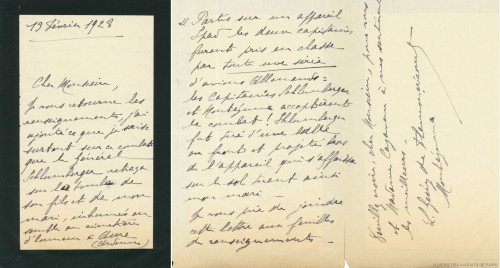 19 Février 1928
Cher Monsieur,
Je vous retourne les
renseignements, j'ai
ajouté ce que je savais
surtout sur ce combat
que le Général
Schlumberger retraça
sur la tombe de
son fils et de mon
mari, inhumés en-
semble au cimetière
d'honneur à Aure
(Ardennes)
Partis sur un appareil
Spad les deux capitaines
furent pris en chasse
par toute une série
d'avions Allemands :
les Capitaines Schlumberger
et acceptèrent
le combat ! Schlumberger
fut tué d'une balle
au front et projeté hors
de l'appareil qui s'affaissa
sur le sol tuant ainsi
mon mari
Je vous prie de joindre
cette lettre aux feuilles
de renseignements.
Veuillez croire cher Monsieur, pour vous
et Madame à mes sentiments
les meilleurs